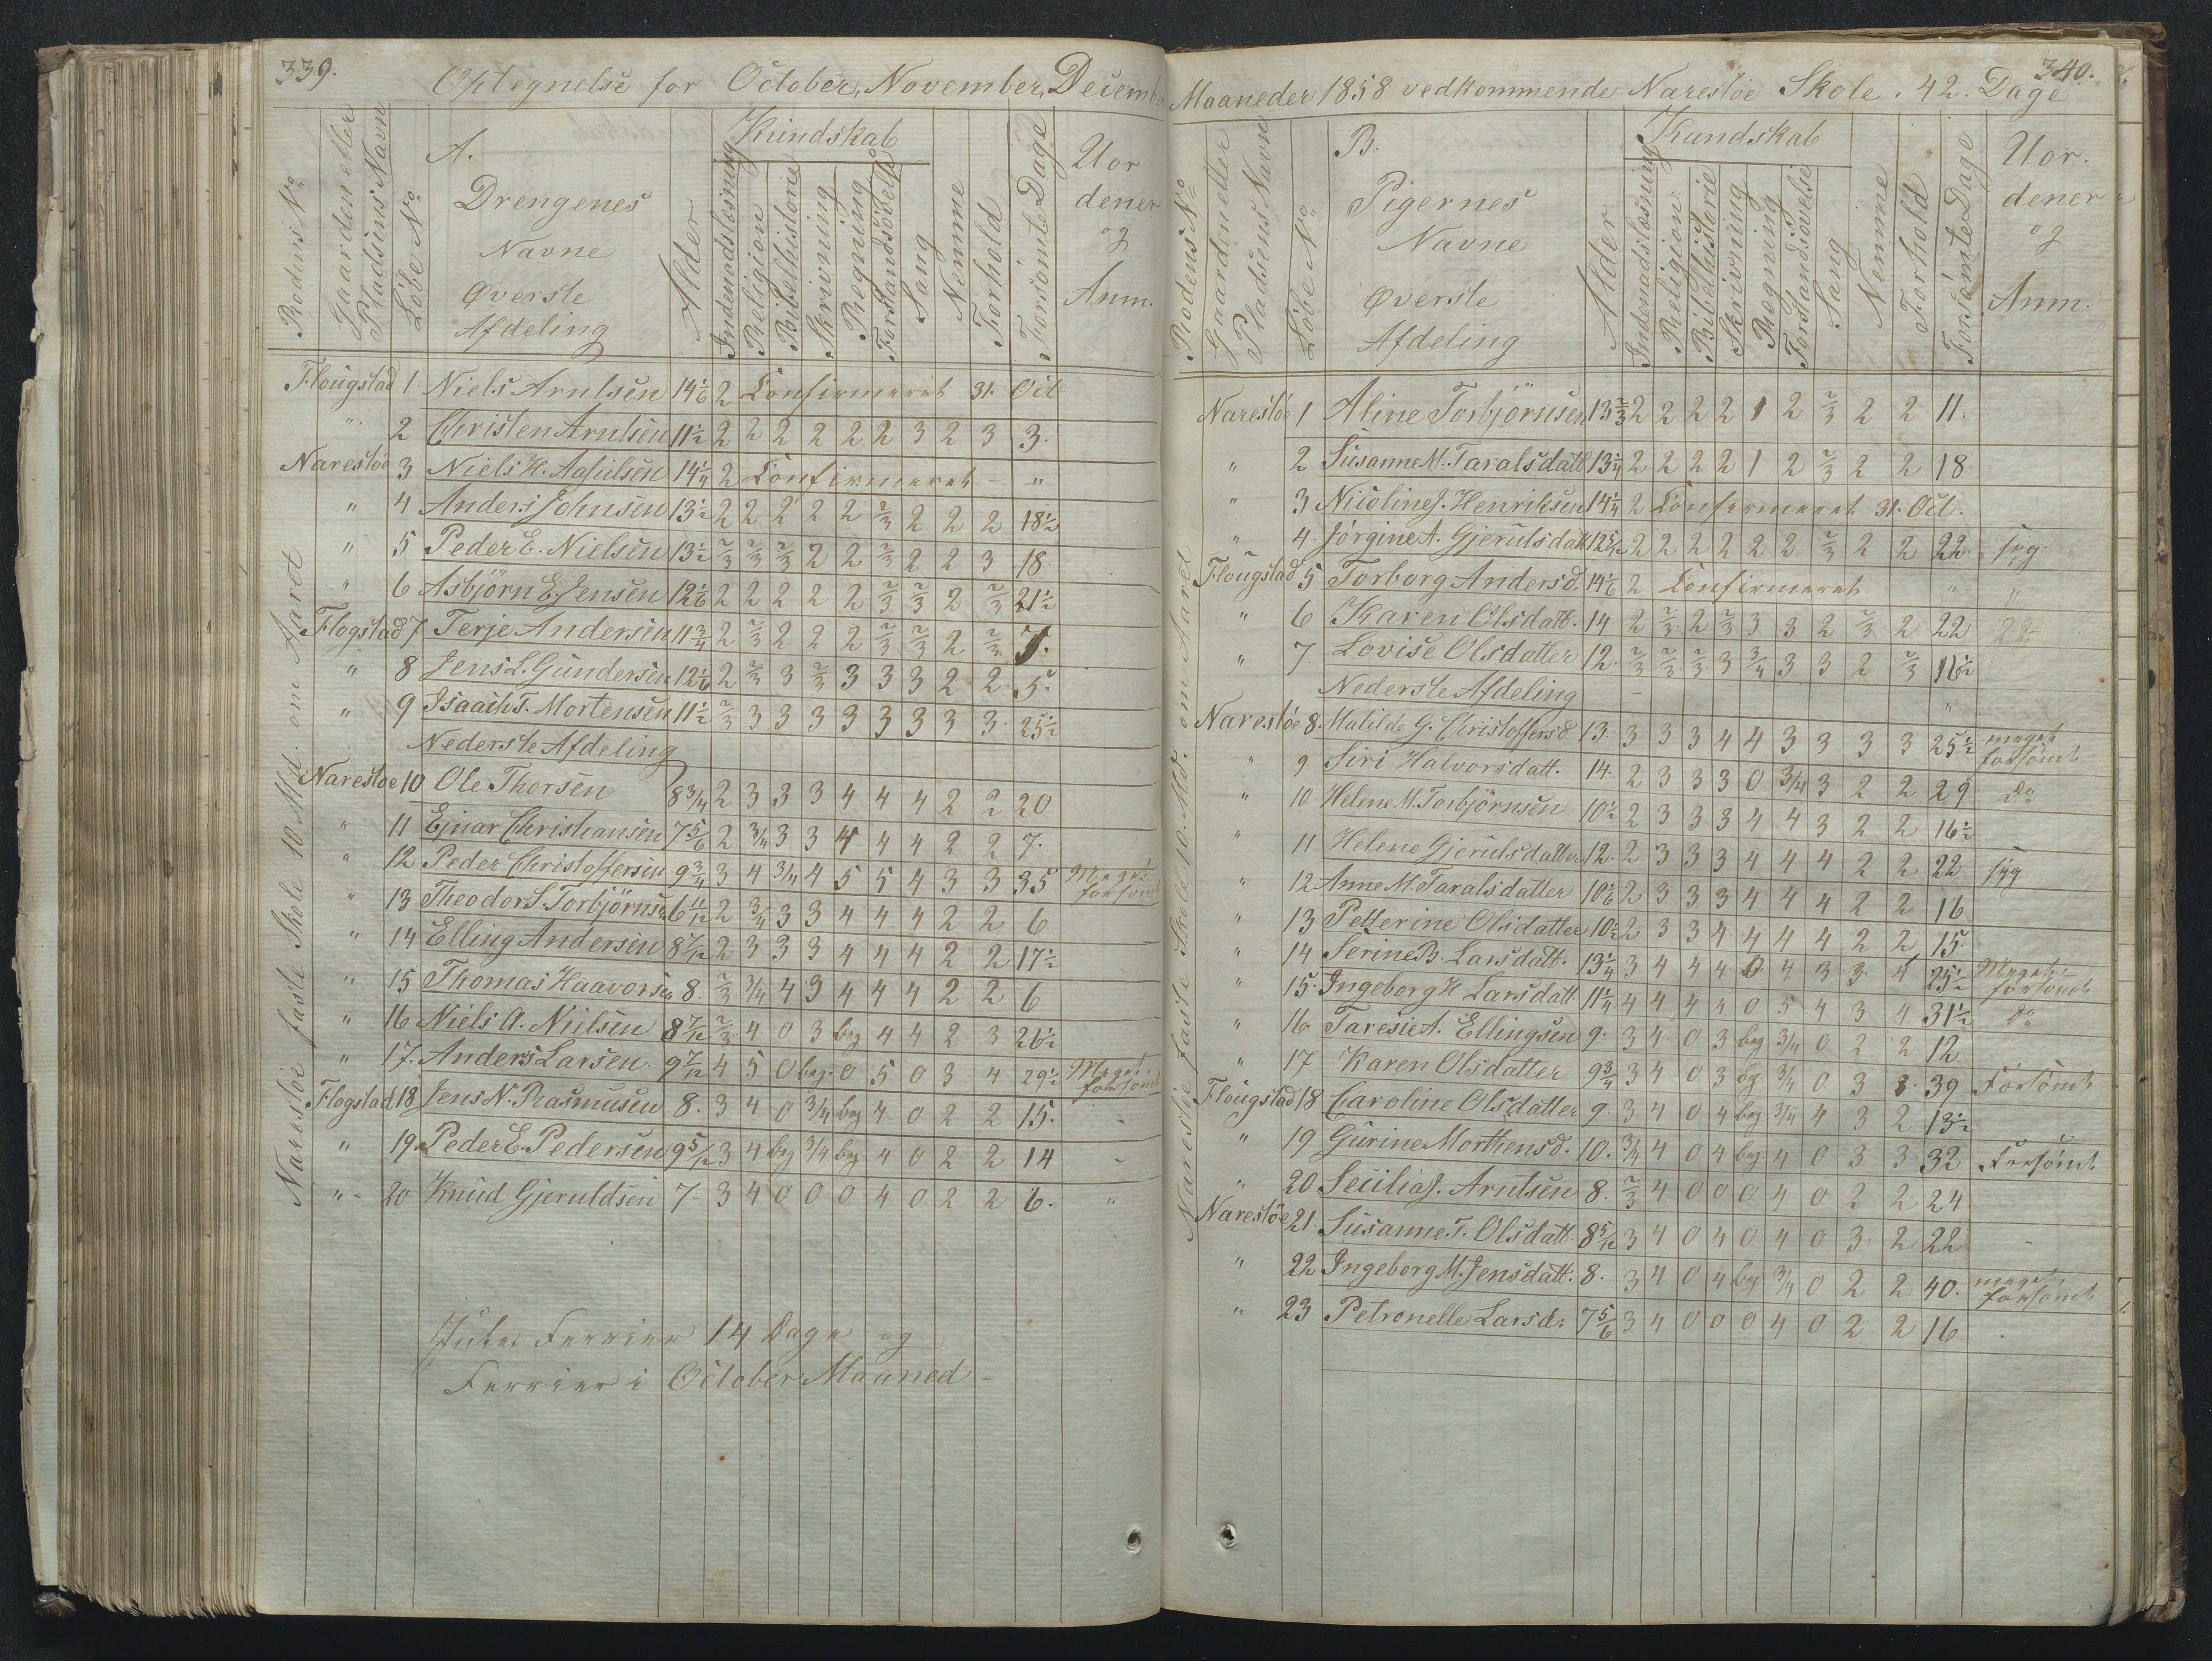 339.
Optegnelse for October, November, December
Rodens No
Gaarden eller Pladsens Navn
Löbe No
A.
Drengenes
Navne
Øverste
Afdeling
Alder
Kundskab
Indenadslæsning
Religion
Bibelhistorie
Skrivning
Regning
Forstandsövelse
Sang
Nemme
Forhold
Forsömte Dage
Uor
dener
og
Anm.
Narestöe faste Skole 10 Md. om Aaret
Flougstad 1 Niels Arntsen 14 1/6 2 Confirmeret 31. Oct
" 2 Christen Arntsen 11 1/2 2 2 2 2 2 2 3 2 3 3.
Narestöe 3 Niels H. 14 1/4 2 Confirmeret - "
" 4 Anders Johnsen 13 1/2 2 2 2 2 2 2/3 2 2 2 18 1/2
" 5 Peder E. Nielsen 13 1/2 2/3 2/3 2/3 2 2 2/3 2 2 3 18
" 6 Asbjörn E. Jensen 12 1/6 2 2 2 2 2 2/3 2/3 2 2/3 21 1/2
Flogstad 7 Terje Andersen 11 3/4 2 2/3 2 2 2 2/3 2/3 2 2/3 7.
" 8 Jens L. Gundersen 12 1/6 2 2/3 3 2/3 3 3 3 2 2 5.
" 9 Isaach T. Mortensen 11 1/2 2/3 3 3 3 3 3 3 3 3 25 1/2
Nederste Afdeling
Narestoe 10 Ole Thorsen 8 3/4 2 3 3 3 4 4 4 2 2 20
" 11 Ejnar Christiansen 7 5/6 2 3/4 3 3 4 4 4 2 2 7.
" 12 Peder Christoffersen 9 3/4 3 4 3/4 4 5 5 4 3 3 35 Meget forsömt
" 13 Theodor S. Torbjörnsen 6 11/12 2 3/4 3 3 4 4 4 2 2 6
" 14 Elling Andersen 8 7/12 2 3 3 3 4 4 4 2 2 17 1/2
" 15 Thomas Haavorsen 8. 2/3 3/4 4 3 4 4 4 2 2 6
" 16 Niels A. Nielsen 8 7/12 2/3 4 0 3 beg 4 4 2 3 26 1/2
" 17. Anders Larsen 9 7/12 4 5 0 beg. 0 5 0 3 4 29 1/2 Meget forsömt
Flogstad 18 Jens N. Rasmusen 8. 3 4 0 3/4 beg 4 0 2 2 15. -
" 19 Peder E. Pedersen 9 5/12 3 4 beg 3/4 beg 4 0 2 2 14 -
" 20 Knud Gjeruldsen 7 3 4 0 0 0 4 0 2 2 6. "
Jule Ferrier 14 Dage og
Ferrier i October Maaned -
340.
Maaneder 1858 vedkommende Narestöe Skole. 42. Dage
Rodens No
Gaarden eller Pladsens Navn
Löbe No
B.
Pigernes
Navne
Øverste
Afdeling
Alder
Kundskab
Indenadslæsning
Religion
Bibelhistorie
Skrivning
Regning
Forstandsövelse
Sang
Nemme
Forhold
Forsömte Dage
Uor.
dener
og
Anm.
Narestöe faste Skole 10. Md. om Aaret
Narestöe 1 Aline Torbjörnsen 13 2/3 2 2 2 2 1 2 2/3 2 2 11.
" 2 Susanne M. Taralsdatt 13 1/4 2 2 2 2 1 2 2/3 2 2 18
" 3 Nicoline J. Henriksen 14 1/4 2 Confirmeret 31. Oct.
" 4. Jörgine A. Gjerulsdatt 12 5/12 2 2 2 2 2 2 2/3 2 2 22 syg
Flougstad 5 Torborg Andersd. 14 1/6 2 Confirmeret " "
" 6 Karen Olsdatt. 14 2 2/3 2 2/3 3 3 2 2/3 2 22 22
" 7. Lovise Olsdatter 12. 2/3 2/3 2/3 3 3/4 3 3 2 2/3 16 1/2
Nederste Afdeling - "
Narestöe 8 Matilde G. Christoffersd 13 3 3 3 4 4 3 3 3 3 25 1/2 meget forsömt
" 9 Siri Halvorsdatt. 14. 2 3 3 3 0 3/4 3 2 2 29 Do
" 10 Helene M. Torbjörnsen 10 1/2 2 3 3 3 4 4 3 2 2 16 1/2
" 11 Helene Gjerulsdatter 12. 2 3 3 3 4 4 4 2 2 22 syg
" 12 Anne M. Taralsdatter 10 1/6 2 3 3 3 4 4 4 2 2 16
" 13 Petterine Olsdatter 10 1/2 2 3 3 4 4 4 4 2 2 15.
" 14 Serine B. Larsdatt. 13 1/4 3 4 4 4 0 4 3 3 4 25 1/2 Meget forsömt
" 15. Ingeborg H Larsdatt. 11 1/4 4 4 4 4 0 5 4 3 4 31 1/2 Do
" 16 Taresie A. Ellingsen 9. 3 4 0 3 beg 3/4 0 2 2 12
" 17 Karen Olsdatter 9 3/4 3 4 0 3 beg 3/4 0 3 3. 39 Forsömt
Flougstad 18 Caroline Olsdatter 9. 3 4 0 4 beg 3/4 4 3 2 13 1/2
" 19 Gurine Morthensd. 10. 3/4 4 0 4 beg 4 0 3 3 32 Forsömt
" 20 Secilia J. Arntsen 8. 2/3 4 0 0 0 4 0 2 2 24
Narestöe 21. Susanne T. Olsdatt. 8 5/12 3 4 0 4 0 4 0 3. 2 22 -
" 22 Ingeborg M. Jensdatt. 8. 3 4 0 4 beg 3/4 0 2 2 40. meget forsömt
" 23 Petronelle Larsd. 7 5/6 3 4 0 0 0 4 0 2 2 16